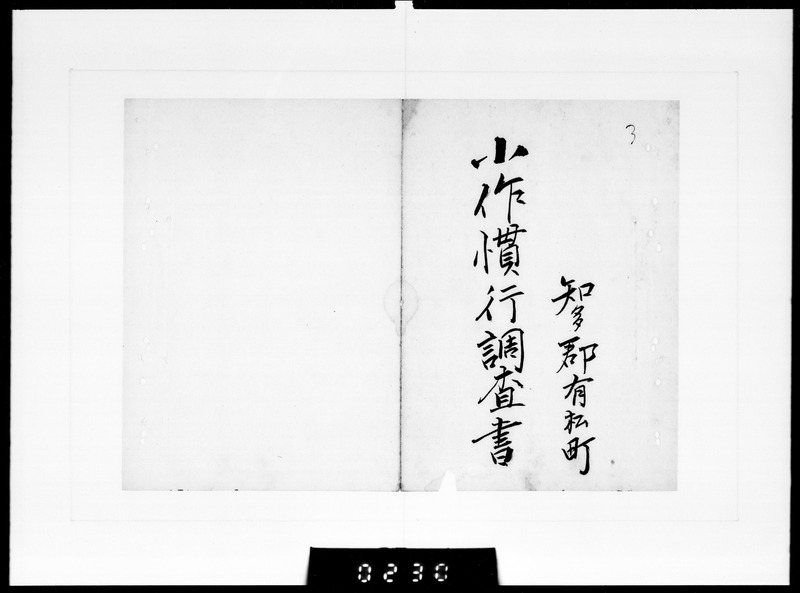 3
知多郡有松町
小作慣行調査書
0230